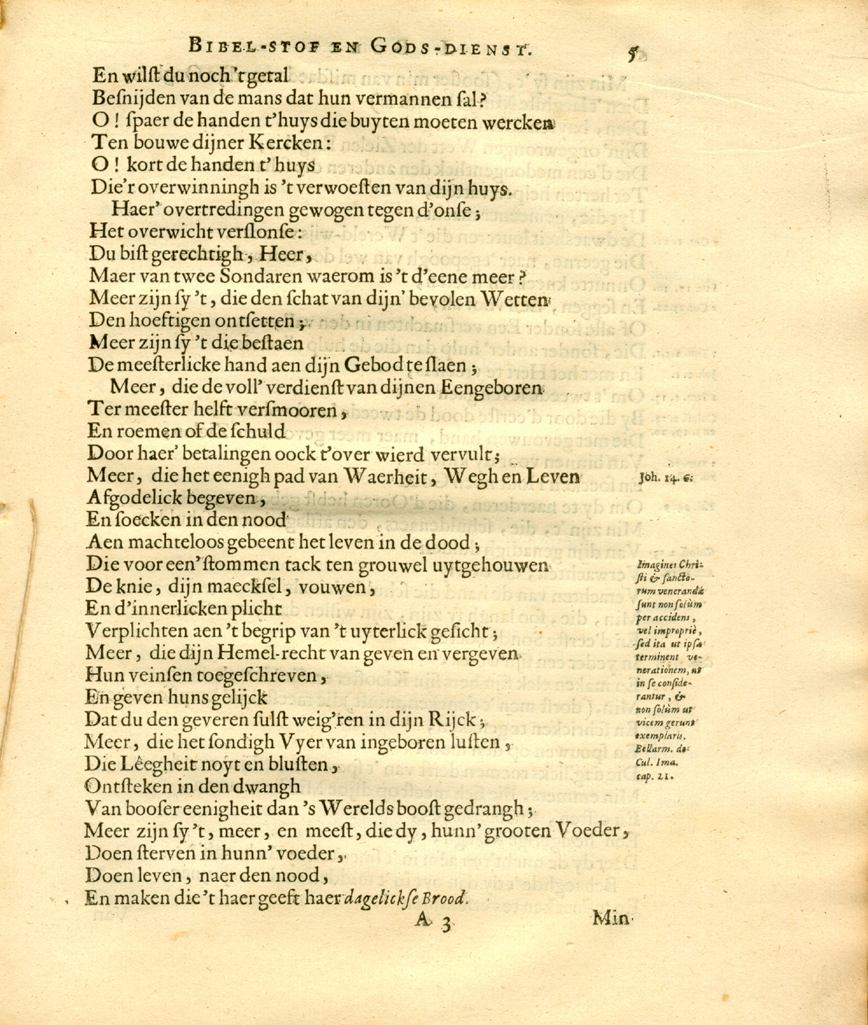 BIBEL-STOF EN GODS-DIENST. 5
En wilſt du noch 't getal
Beſnijden van de mans dat hun vermannen ſal?
O! ſpaer de handen t'huys die buyten moeten wercken
Ten bouwe dijner Kercken:
O! kort de handen t'huys
Die'r overwinningh is 't verwoeſten van dijn huys.
Haer' overtredingen gewogen tegen d'onſe;
Het overwicht verſlonſe:
Du biſt gerechtigh, Heer,
Maer van twee Sondaren waerom is 't d'eene meer?
Meer zijn ſy 't, die den ſchat van dijn' bevolen Wetten
Den hoeftigen ontſetten;
Meer zijn ſy 't die beſtaen
De meeſterlicke hand aen dijn Gebod te ſlaen;
Meer, die de voll' verdienſt van dijnen Eengeboren
Ter meeſter helft verſmooren,
En roemen of de ſchuld
Door haer' betalingen oock t'over wierd vervult;
Meer, die het eenigh pad van Waerheit, Wegh en Leven
Joh. 14. 6.
Afgodelick begeven,
En ſoecken in den nood
Aen machteloos gebeent het leven in de dood;
Die voor een' ſtommen tack ten grouwel uytgehouwen
De knie, dijn maeckſel, vouwen,
En d'innerlicken plicht
Verplichten aen 't begrip van 't uyterlick geſicht;
Meer, die dijn Hemel-recht van geven en vergeven
Hun veinſen toegeſchreven,
En geven huns gelijck
Dat du den geveren ſulſt weig'ren in dijn Rijck;
Meer, die het ſondigh Vyer van ingeboren luſten,
Die Lêegheit noyt en bluſten,
Ontſteken in den dwangh
Van booſer eenigheit dan 's Werelds booſt gedrangh;
Meer zijn ſy 't, meer, en meeſt, die dy, hunn' grooten Voeder,
Doen ſterven in hunn' voeder,
Doen leven, naer den nood,
En maken die 't haer geeft haer dagelickſe Brood.
Imagines Chri-
ſti & ſancto-
rum venerandæ
ſunt non ſolùm
per accidens,
vel impropriè,
ſed ita ut ipſæ
terminent ve-
nerationem, ut
in ſe conſide-
rantur, &
non ſolùm ut
vicem gerunt
exemplaris.
Bellarm. de
Cul. Ima.
cap. 21.
A 3 Min